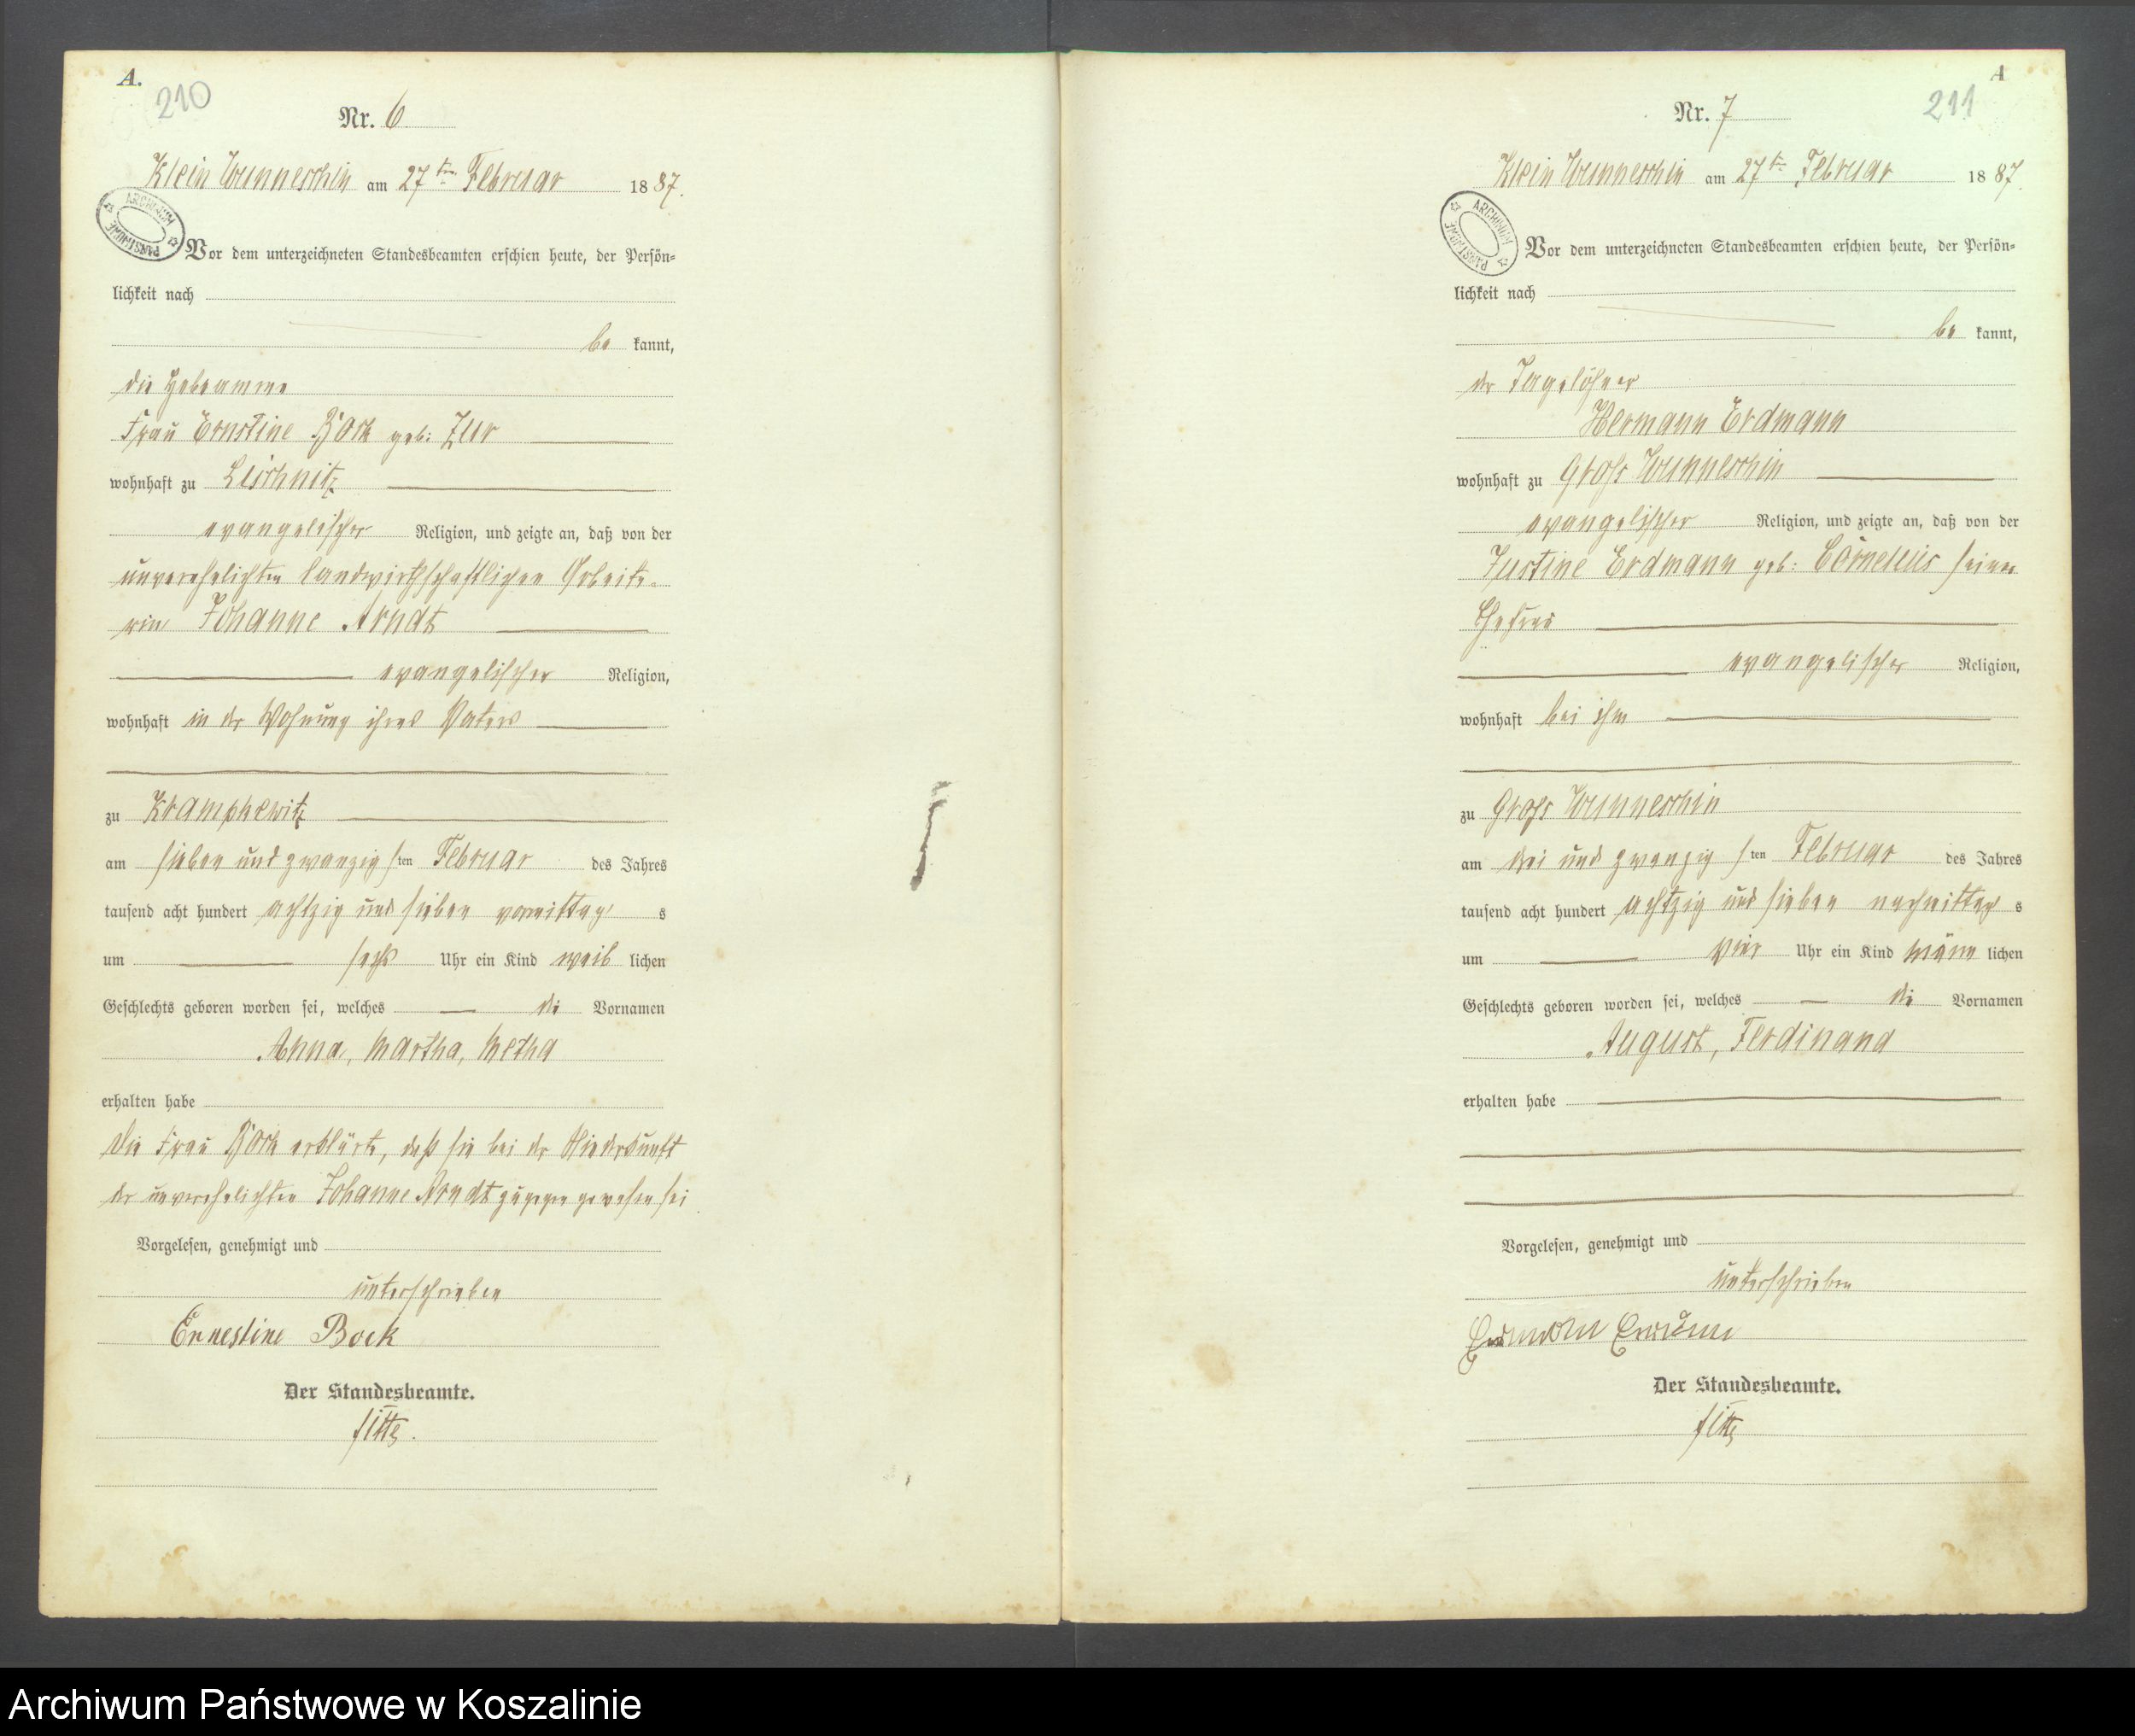 A.
210
Nr. 6
Klein Wunneschin am 27ten Februar 1887.
ARCHIWUM PAŃSTWOWE
Vor dem unterzeichneten Standesbeamten erschien heute, der Persön-
lichkeit nach
be kannt,
die Hebeamme
Frau Ernstine Bock geb: Zur
wohnhaft zu Lischnitz
evangelischer Religion, und zeigte an, daß von der
unverehelichten landwirthschaftlichen Arbeite-
rin Johanne Arndt
evangelischer Religion,
wohnhaft in der Wohnung ihres Vaters
zu Krampkewitz
am sieben und zwanzigsten Februar des Jahres
tausend acht hundert achtzig und sieben vormittags
um sechs Uhr ein Kind weiblichen
Geschlechts geboren worden sei, welches die Vornamen
Anna, Martha, Metha
erhalten habe
Die Frau Bock erklärte, daß sie bei der Niederkunft
der unverehelichten Johanne Arndt zugegen gewesen sei
Vorgelesen, genehmigt und
unterschrieben
Ernestine Bock
Der Standesbeamte.
A
211
Nr. 7
Klein Wunneschin am 27te Februar 1887.
ARCHIWUM PAŃSTWOWE
Vor dem unterzeichneten Standesbeamten erschien heute, der Persön-
lichkeit nach
be kannt,
der Tagelöhner
Hermann Erdmann
wohnhaft zu Groß Wunneschin
evangelischer Religion, und zeigte an, daß von der
Justine Erdmann geb: Cornelius seiner
Ehefrau
evangelischer Religion,
wohnhaft bei ihm
zu Groß Wunneschin
am drei und zwanzigsten Februar des Jahres
tausend acht hundert achtzig und sieben nachmittags
um vier Uhr ein Kind männlichen
Geschlechts geboren worden sei, welches die Vornamen
August, Ferdinand
erhalten habe
Vorgelesen, genehmigt und
unterschrieben
Der Standesbeamte.
Archiwum Państwowe w Koszalinie